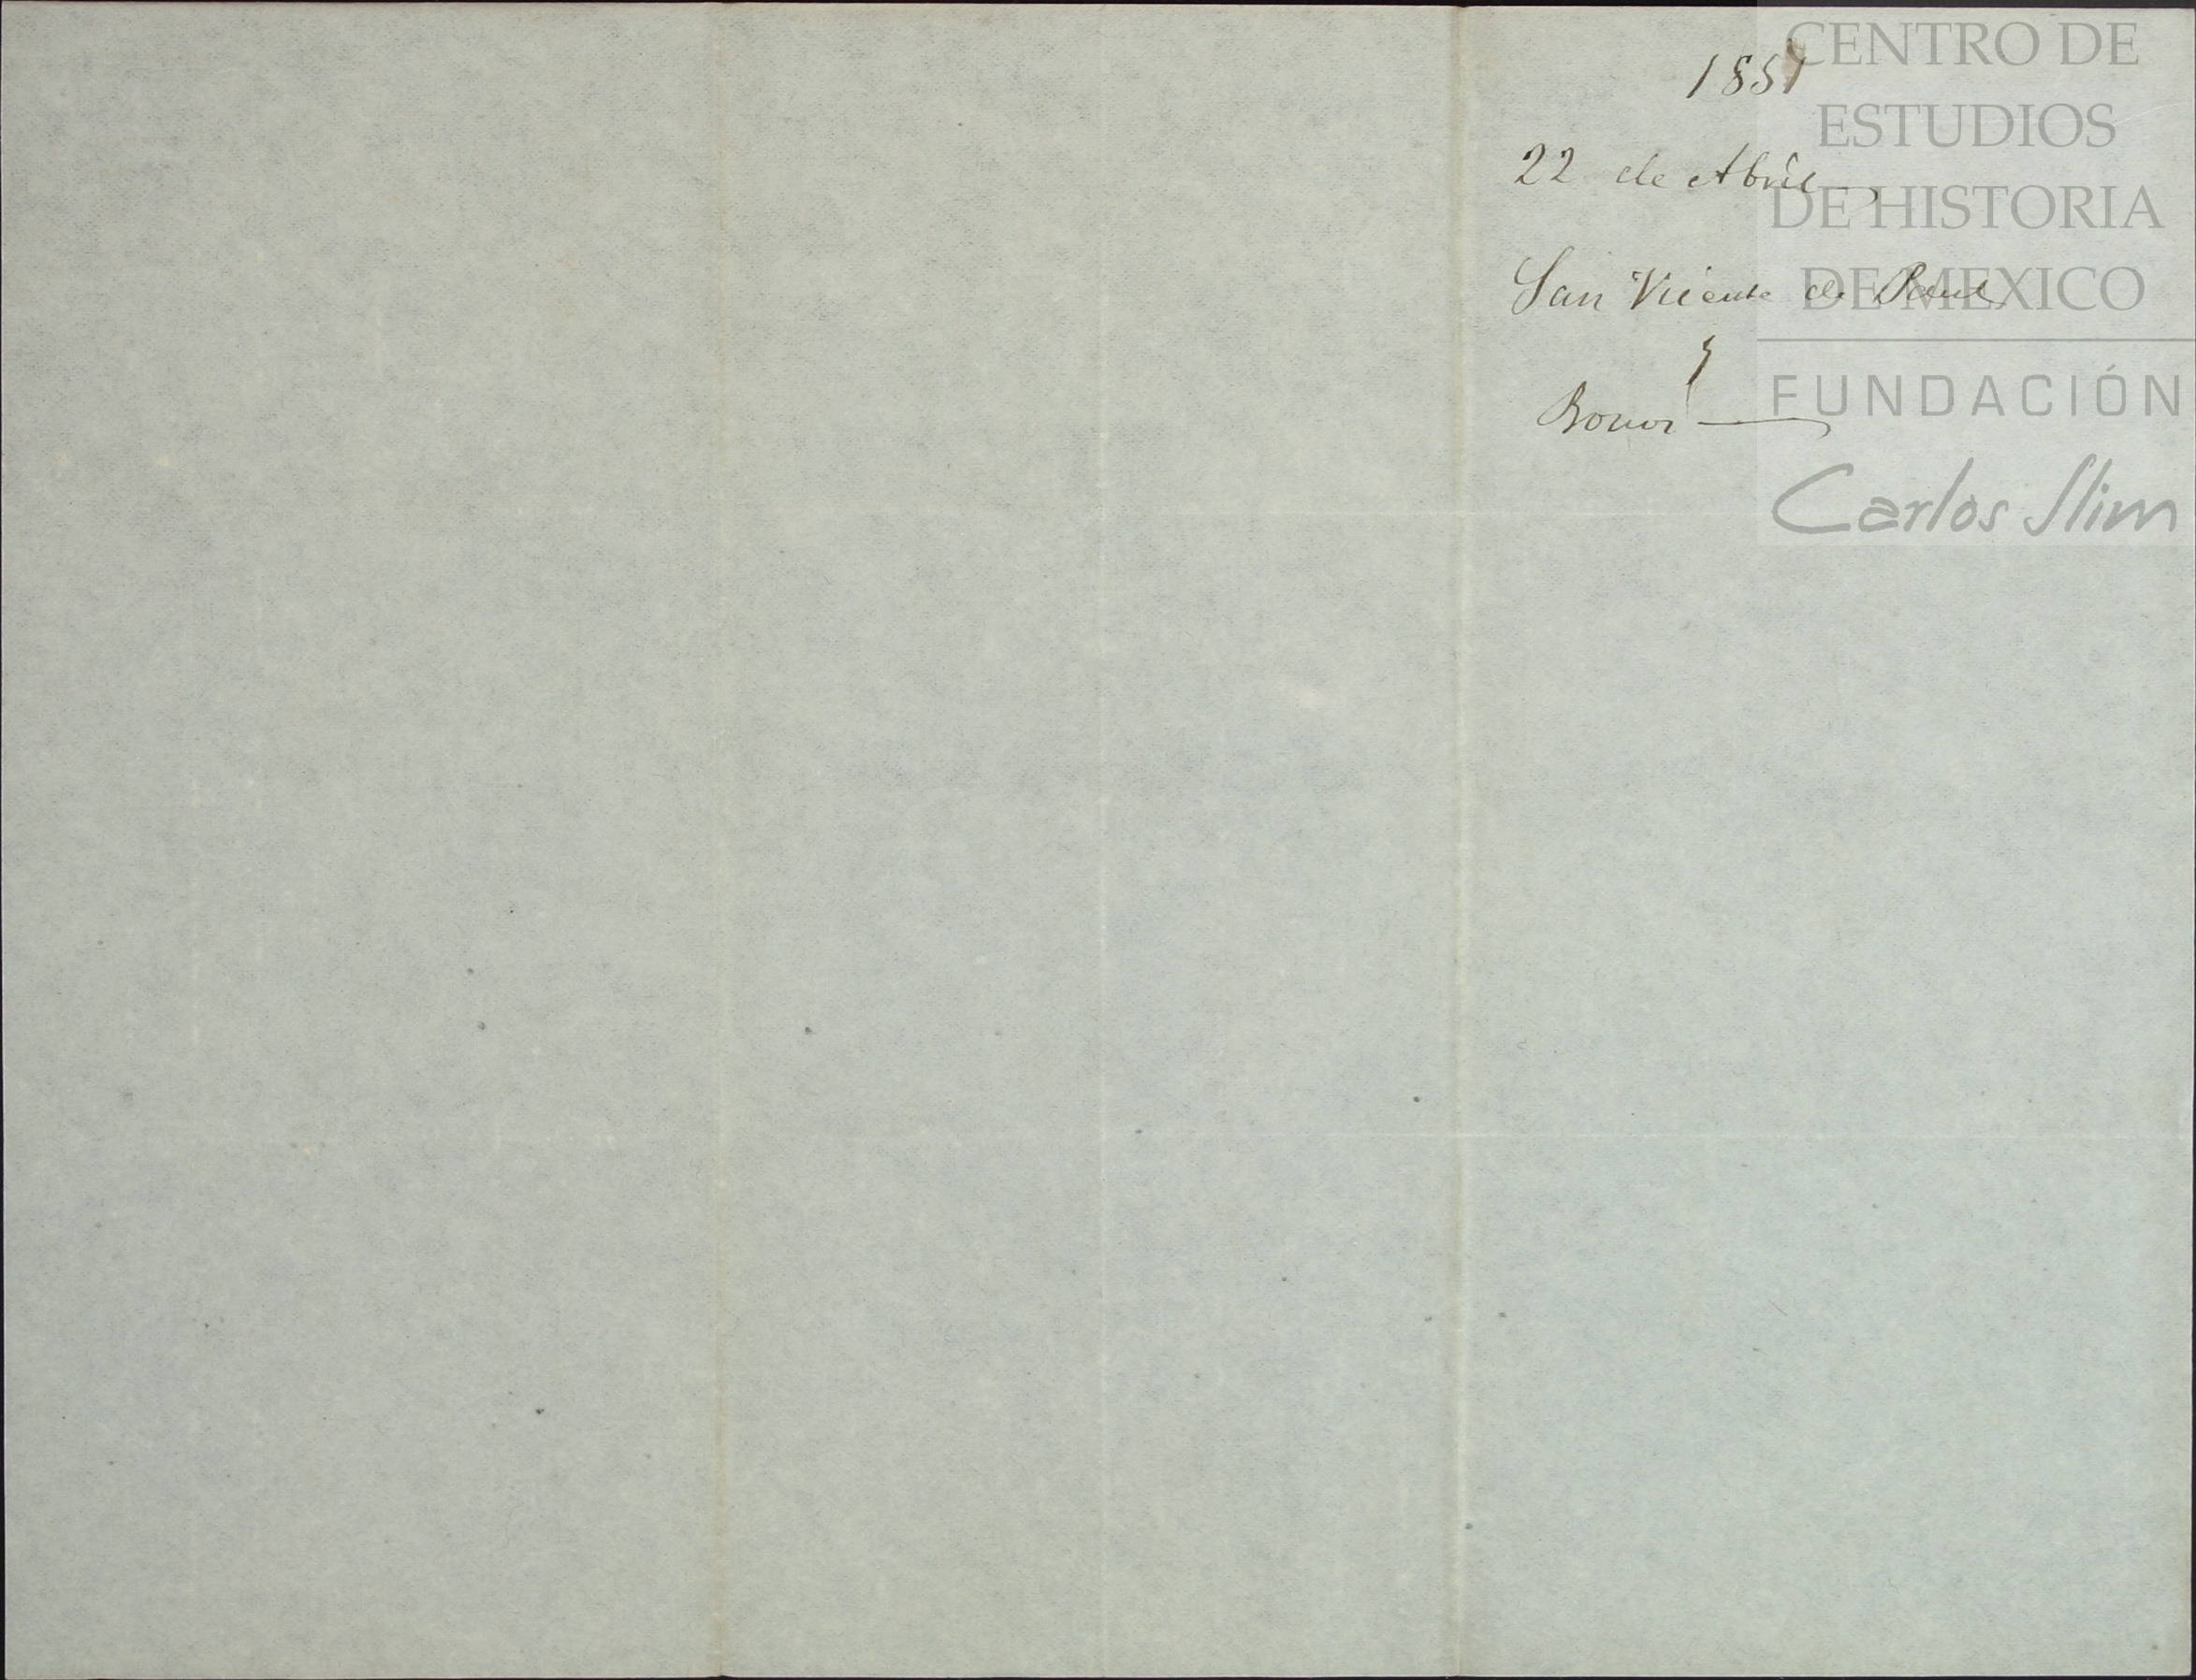 185
22 de Abril
San Vicente de Paul
y
CENTRO DE
ESTUDIOS
DE HISTORIA
DE MEXICO
FUNDACIÓN
Carlos Slim